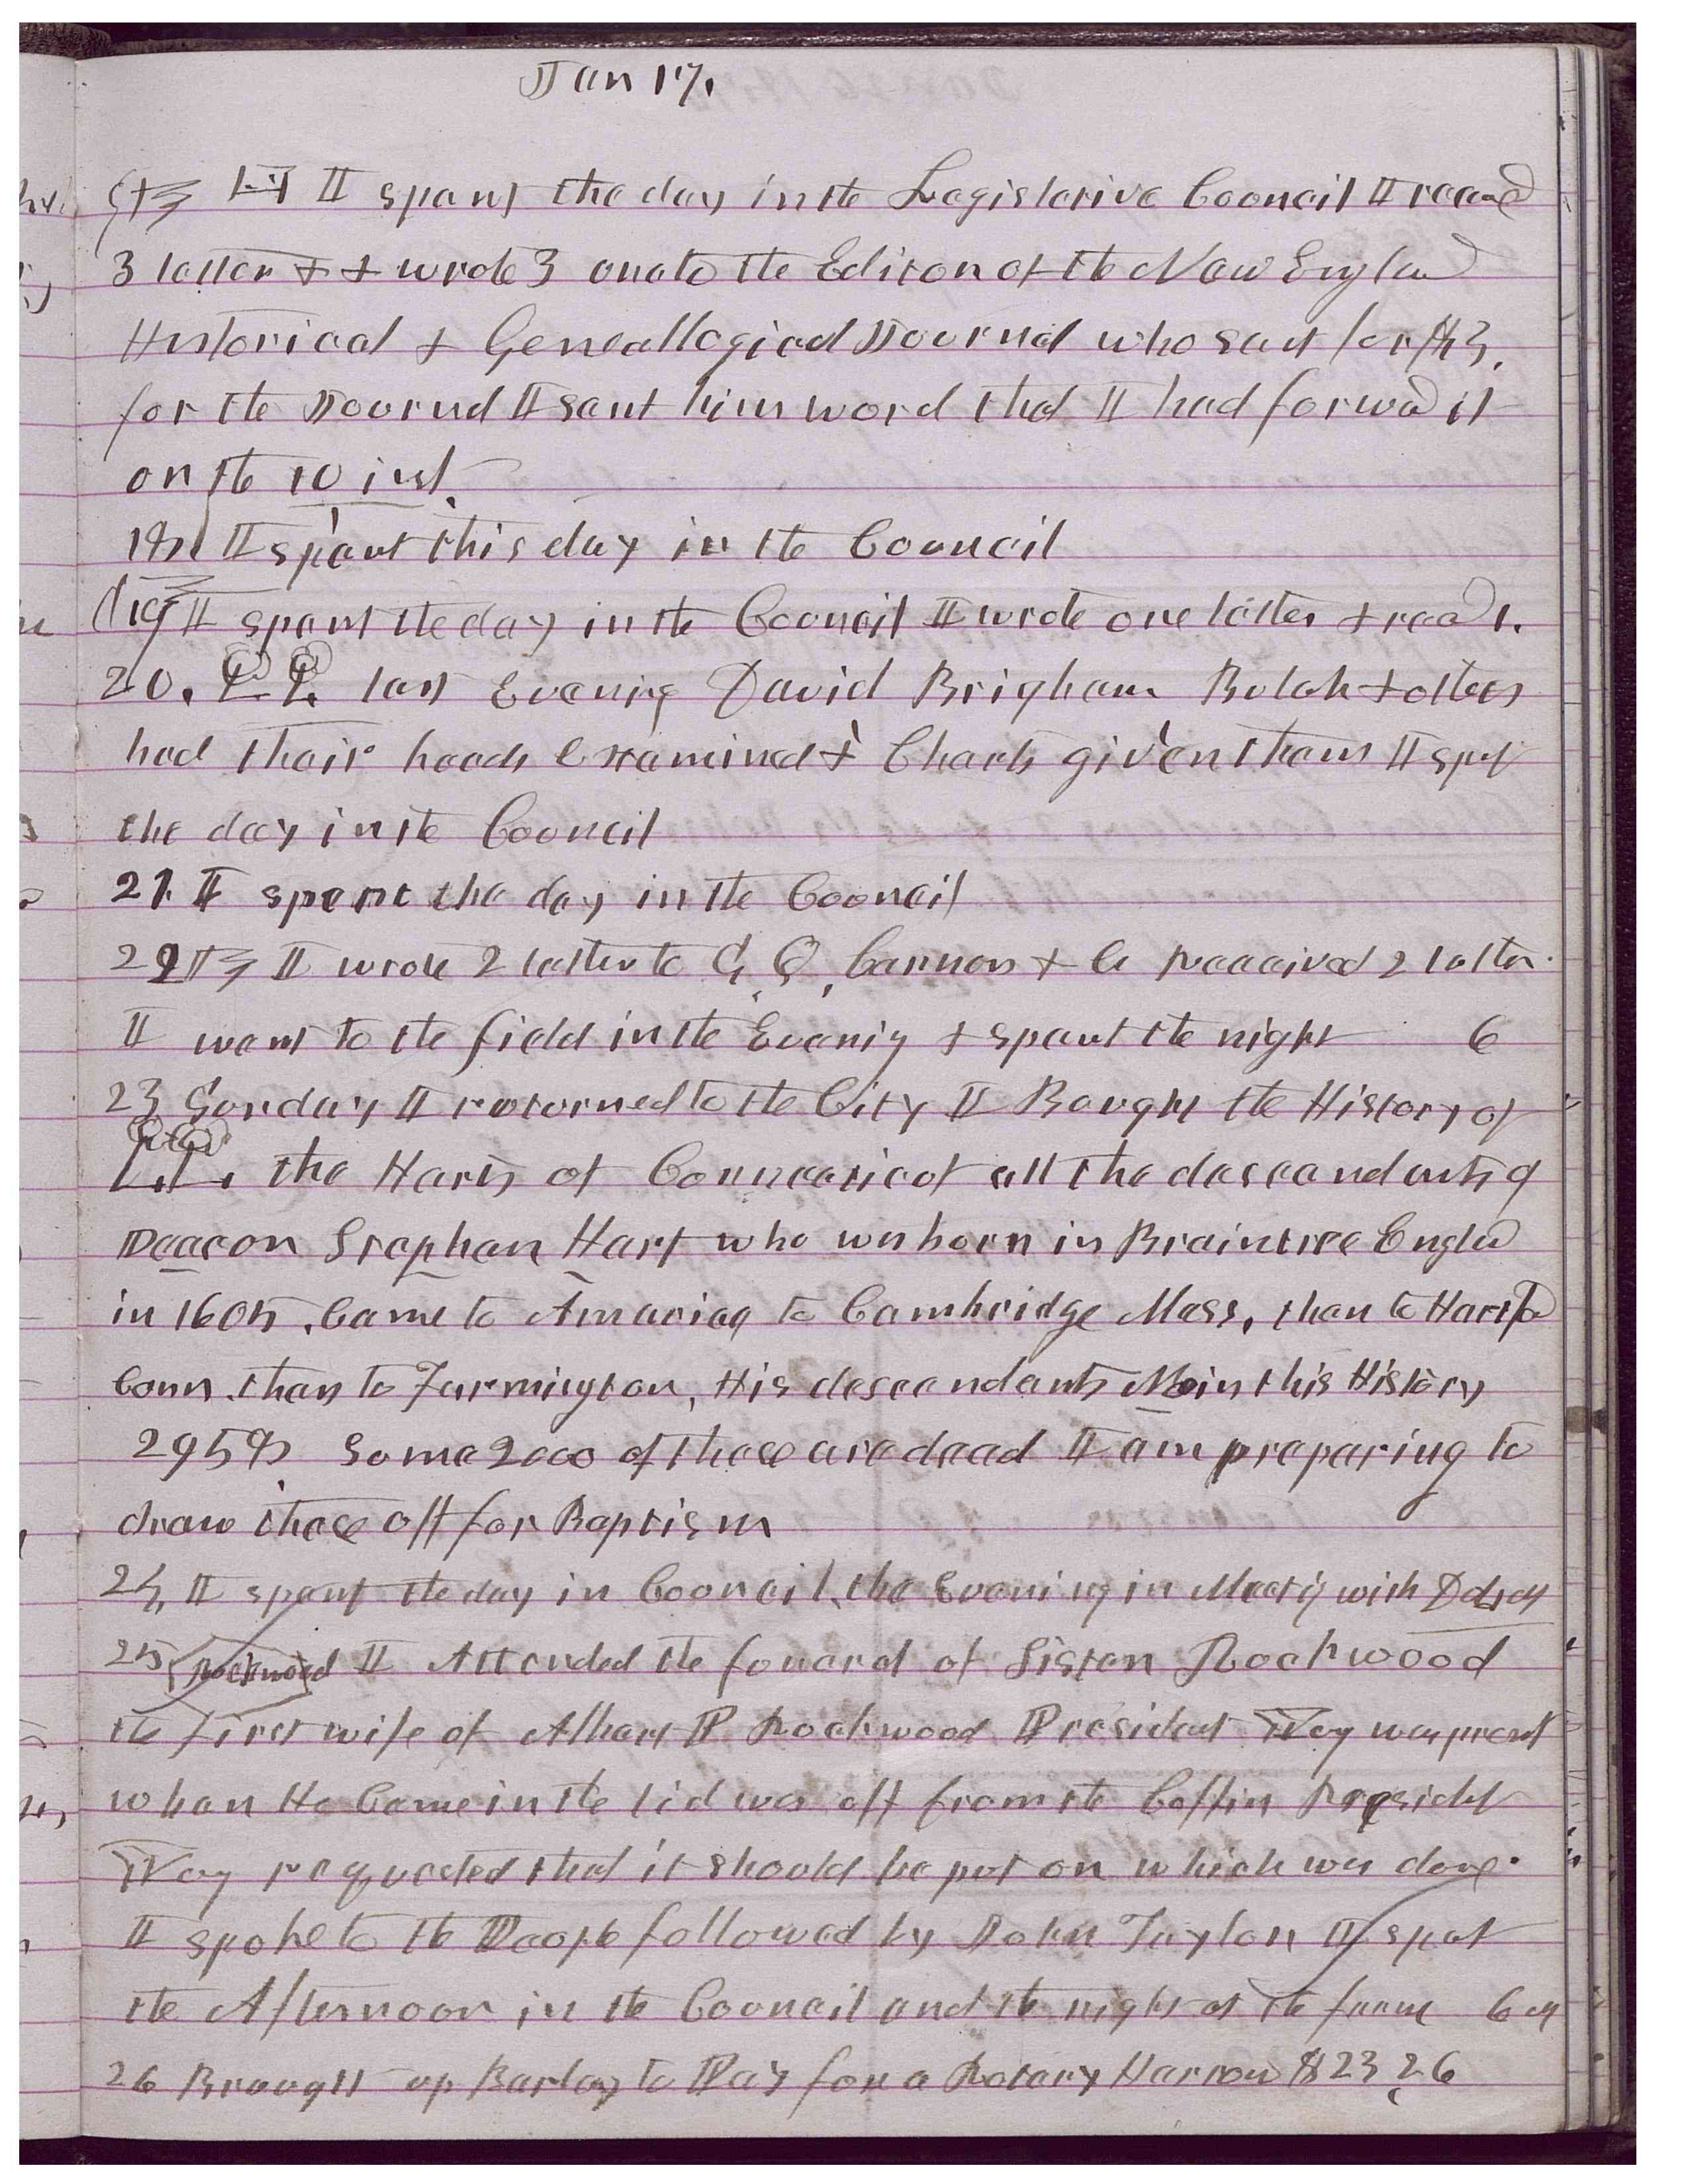 Jan 17.
I spent the day in the Legislative Council I recd
3 letter & & wrote 3 one to the Editor of the New England
Historical & Geneallogical Journal who sent for $3,
for the Journal I sent him word that I had forwd it
on the 10 inst.
18 I spent this day in the Council
19 I spent the day in the Council I wrote one letter & recd 1.
20. last Evening David Brigham Bulah & others
had their heads examined & Charts given them I spent
the day in the Council
21. I spent the day in the Council
22 I wrote 2 letter to G, Q, Cannon & Co Received 2 letter.
I went to the field in the Evening & spent the night 6
23 Sunday I returned to the City I Bought the History of
the Harts of Connecticut all the descendants of
Deacon Stephen Hart who was born in Braintree England
in 1605. Came to America to Cambridge Mass, then to Hartfd
Conn. then to Farmington, His descendants in this History
2959 Some 2000 of these are dead I am preparing to
draw these off for Baptism
24, I spent the day in Council, the Evening in Meetig with
25, Rockwood I Attended the funeral of Sister Rockwood
the first wife of Albert P Rockwood President Young was present
when He Came in the lid was off from the Coffin President
Young requested that it should be put on which was done.
I spoke to the People followed by John Taylor I spent
the Afternoon in the Council and the night at the farm 6 m
26 Brought up Barley to Pay for a Rotary Harrow $23 26